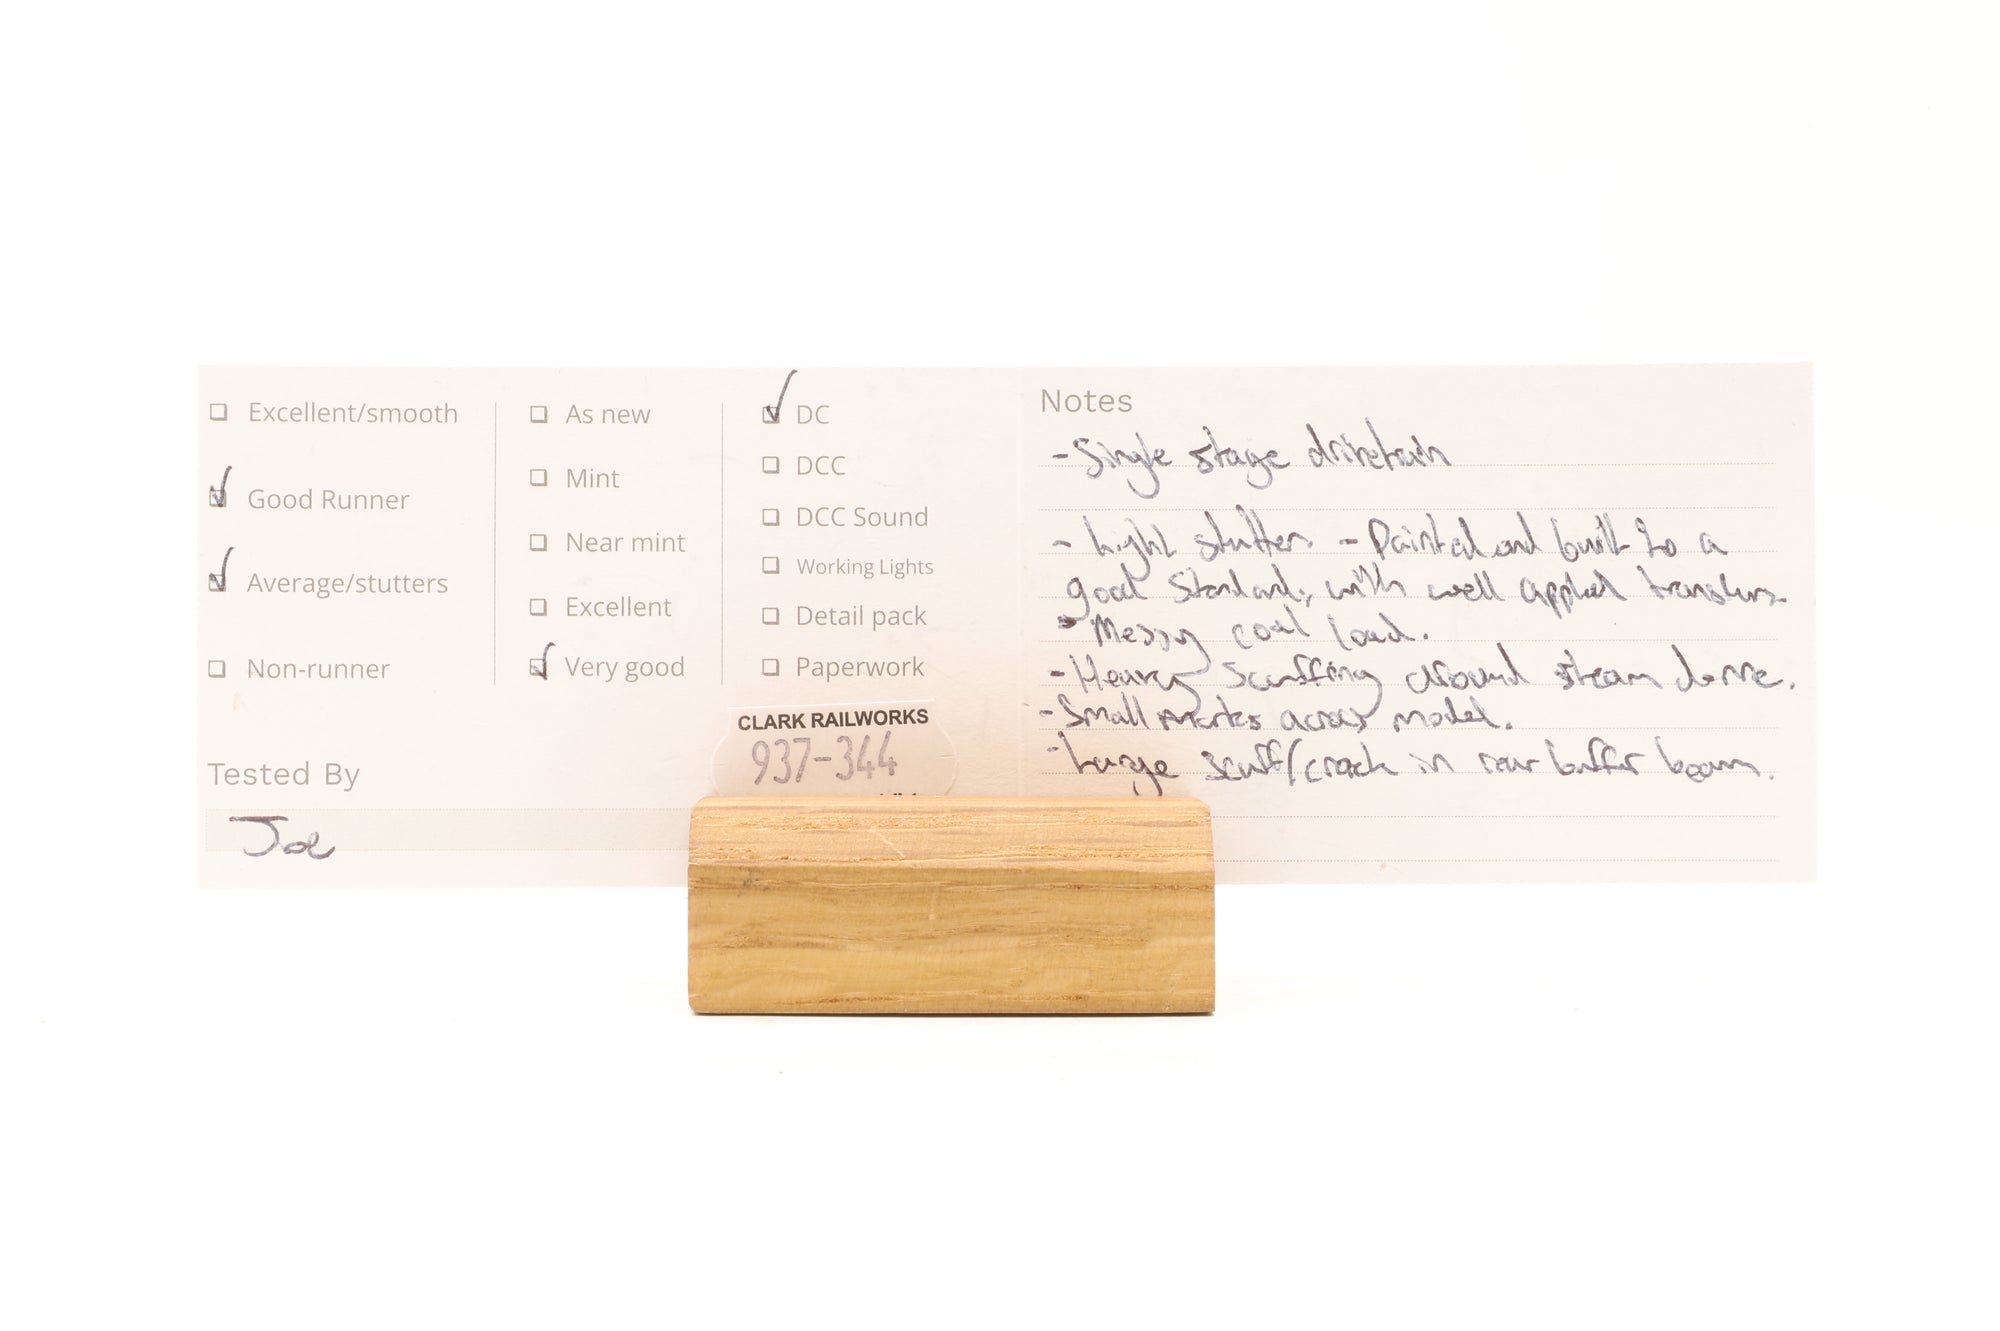 Excellent/smooth
Good Runner
Average/stutters
Non-runner
As new
Mint
Near mint
Excellent
Very good
DC
DCC
DCC Sound
Working Lights
Detail pack
Paperwork
Tested By
Joe
CLARK RAILWORKS
937-344
Notes
- Single stage drivetrain
- Light stutter. - Painted and built to a
good standard, with well applied transfers
- Messy coal load.
- Heavy scuffing around steam dome.
- Small marks across model.
- Large scuff/crack in rear buffer beam.